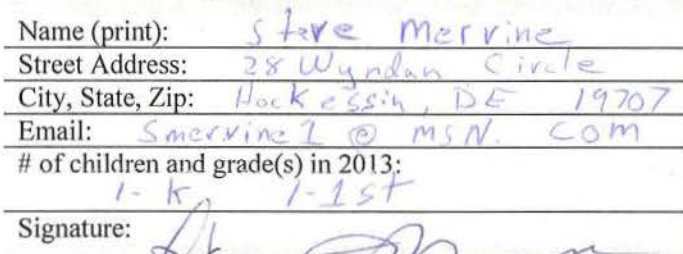 Name (print): Steve Mervine
Street Address: 28 Wyndam Circle
City, State, Zip: Hockessin, DE 19707
Email: Smervine1@msN.com
# of children and grade(s) in 2013:
1-K, 1-1st
Signature: